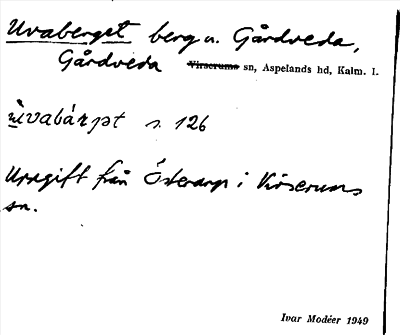 Uvaberget berg n. Gårdveda,
Gårdveda Virserums sn, Aspelands hd, Kalm. l.
ùvabárjət s. 126
Uppgift från Österarp i Virserums
sn.
Ivar Modéer 1949